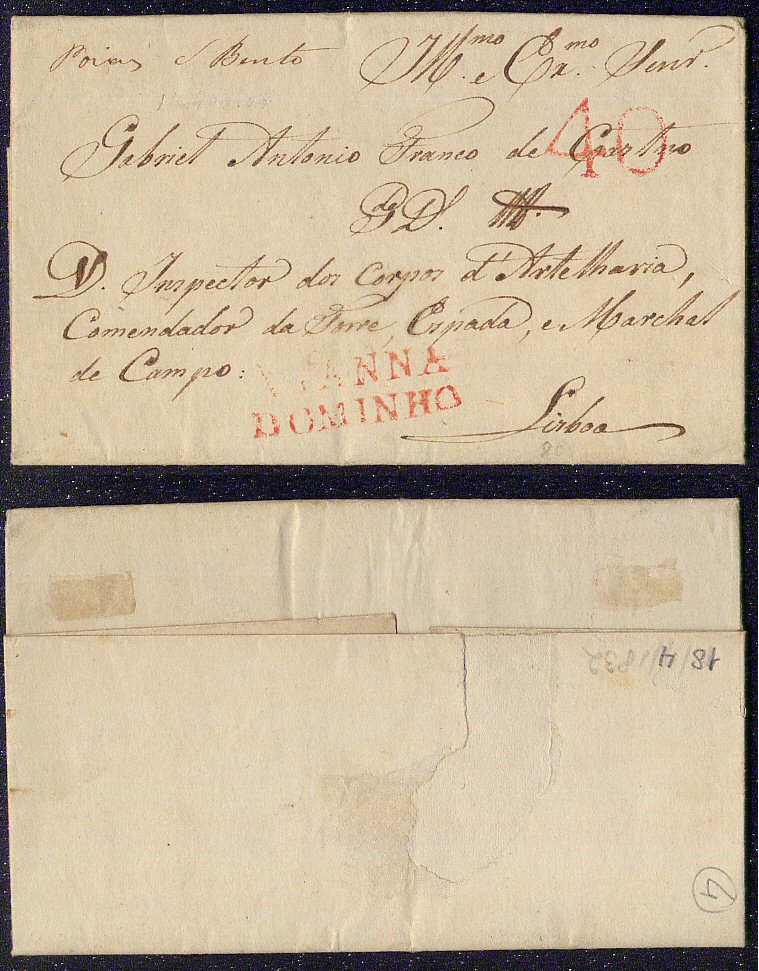 Poiais S Bento Ill.mo e Ex.mo Senr.
40
Gabriel Antonio Franco de Castro
G.de D.
D. Inspector dos Corpos d'Artelharia,
Comendador da Torre, Espada, e Marchal
de Campo:
VIANNA
DOMINHO
Lisboa
18/4/1832
4